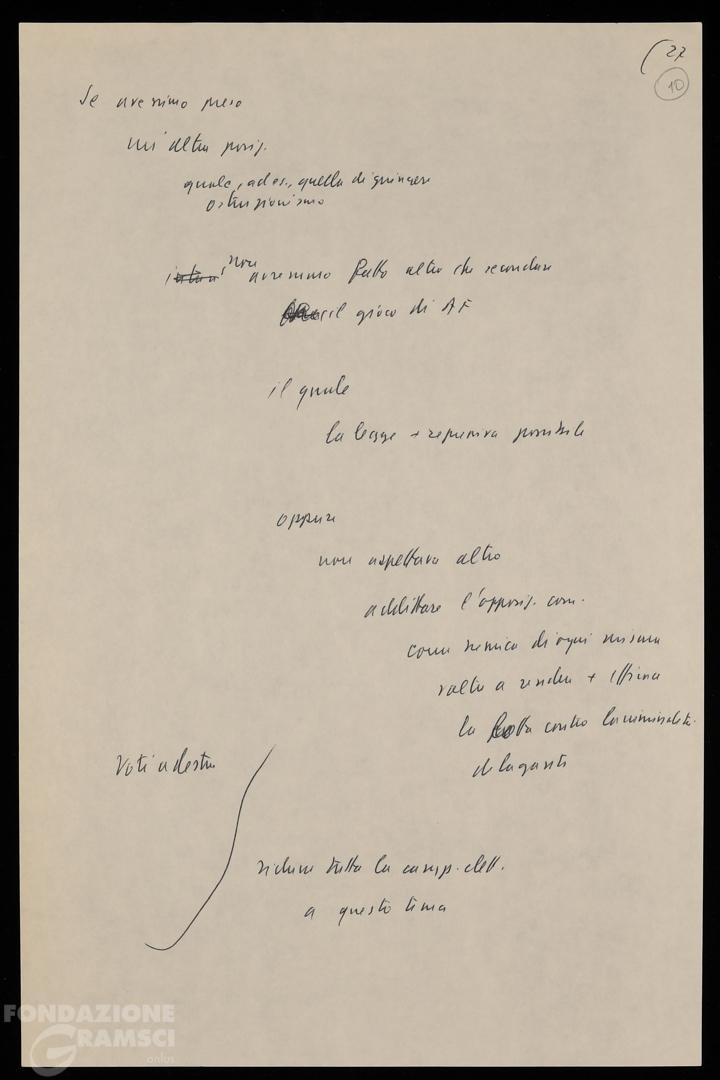 27
10
Se avessimo preso
un'altra posiz.
quale, ad es., quella di giungere
ostruzionismo
non avremmo fatto altro che secondare
il gioco di AF
il quale
la legge + repressiva possibile
oppure
non aspettava altro
additare l'opposiz. com.
come nemica di ogni misura
volta a rendere + efficace
la lotta contro la criminalità
dilagante
Voti a destra
ridurre tutta la camp. elett.
a questo tema
FONDAZIONE
GRAMSCI
onlus